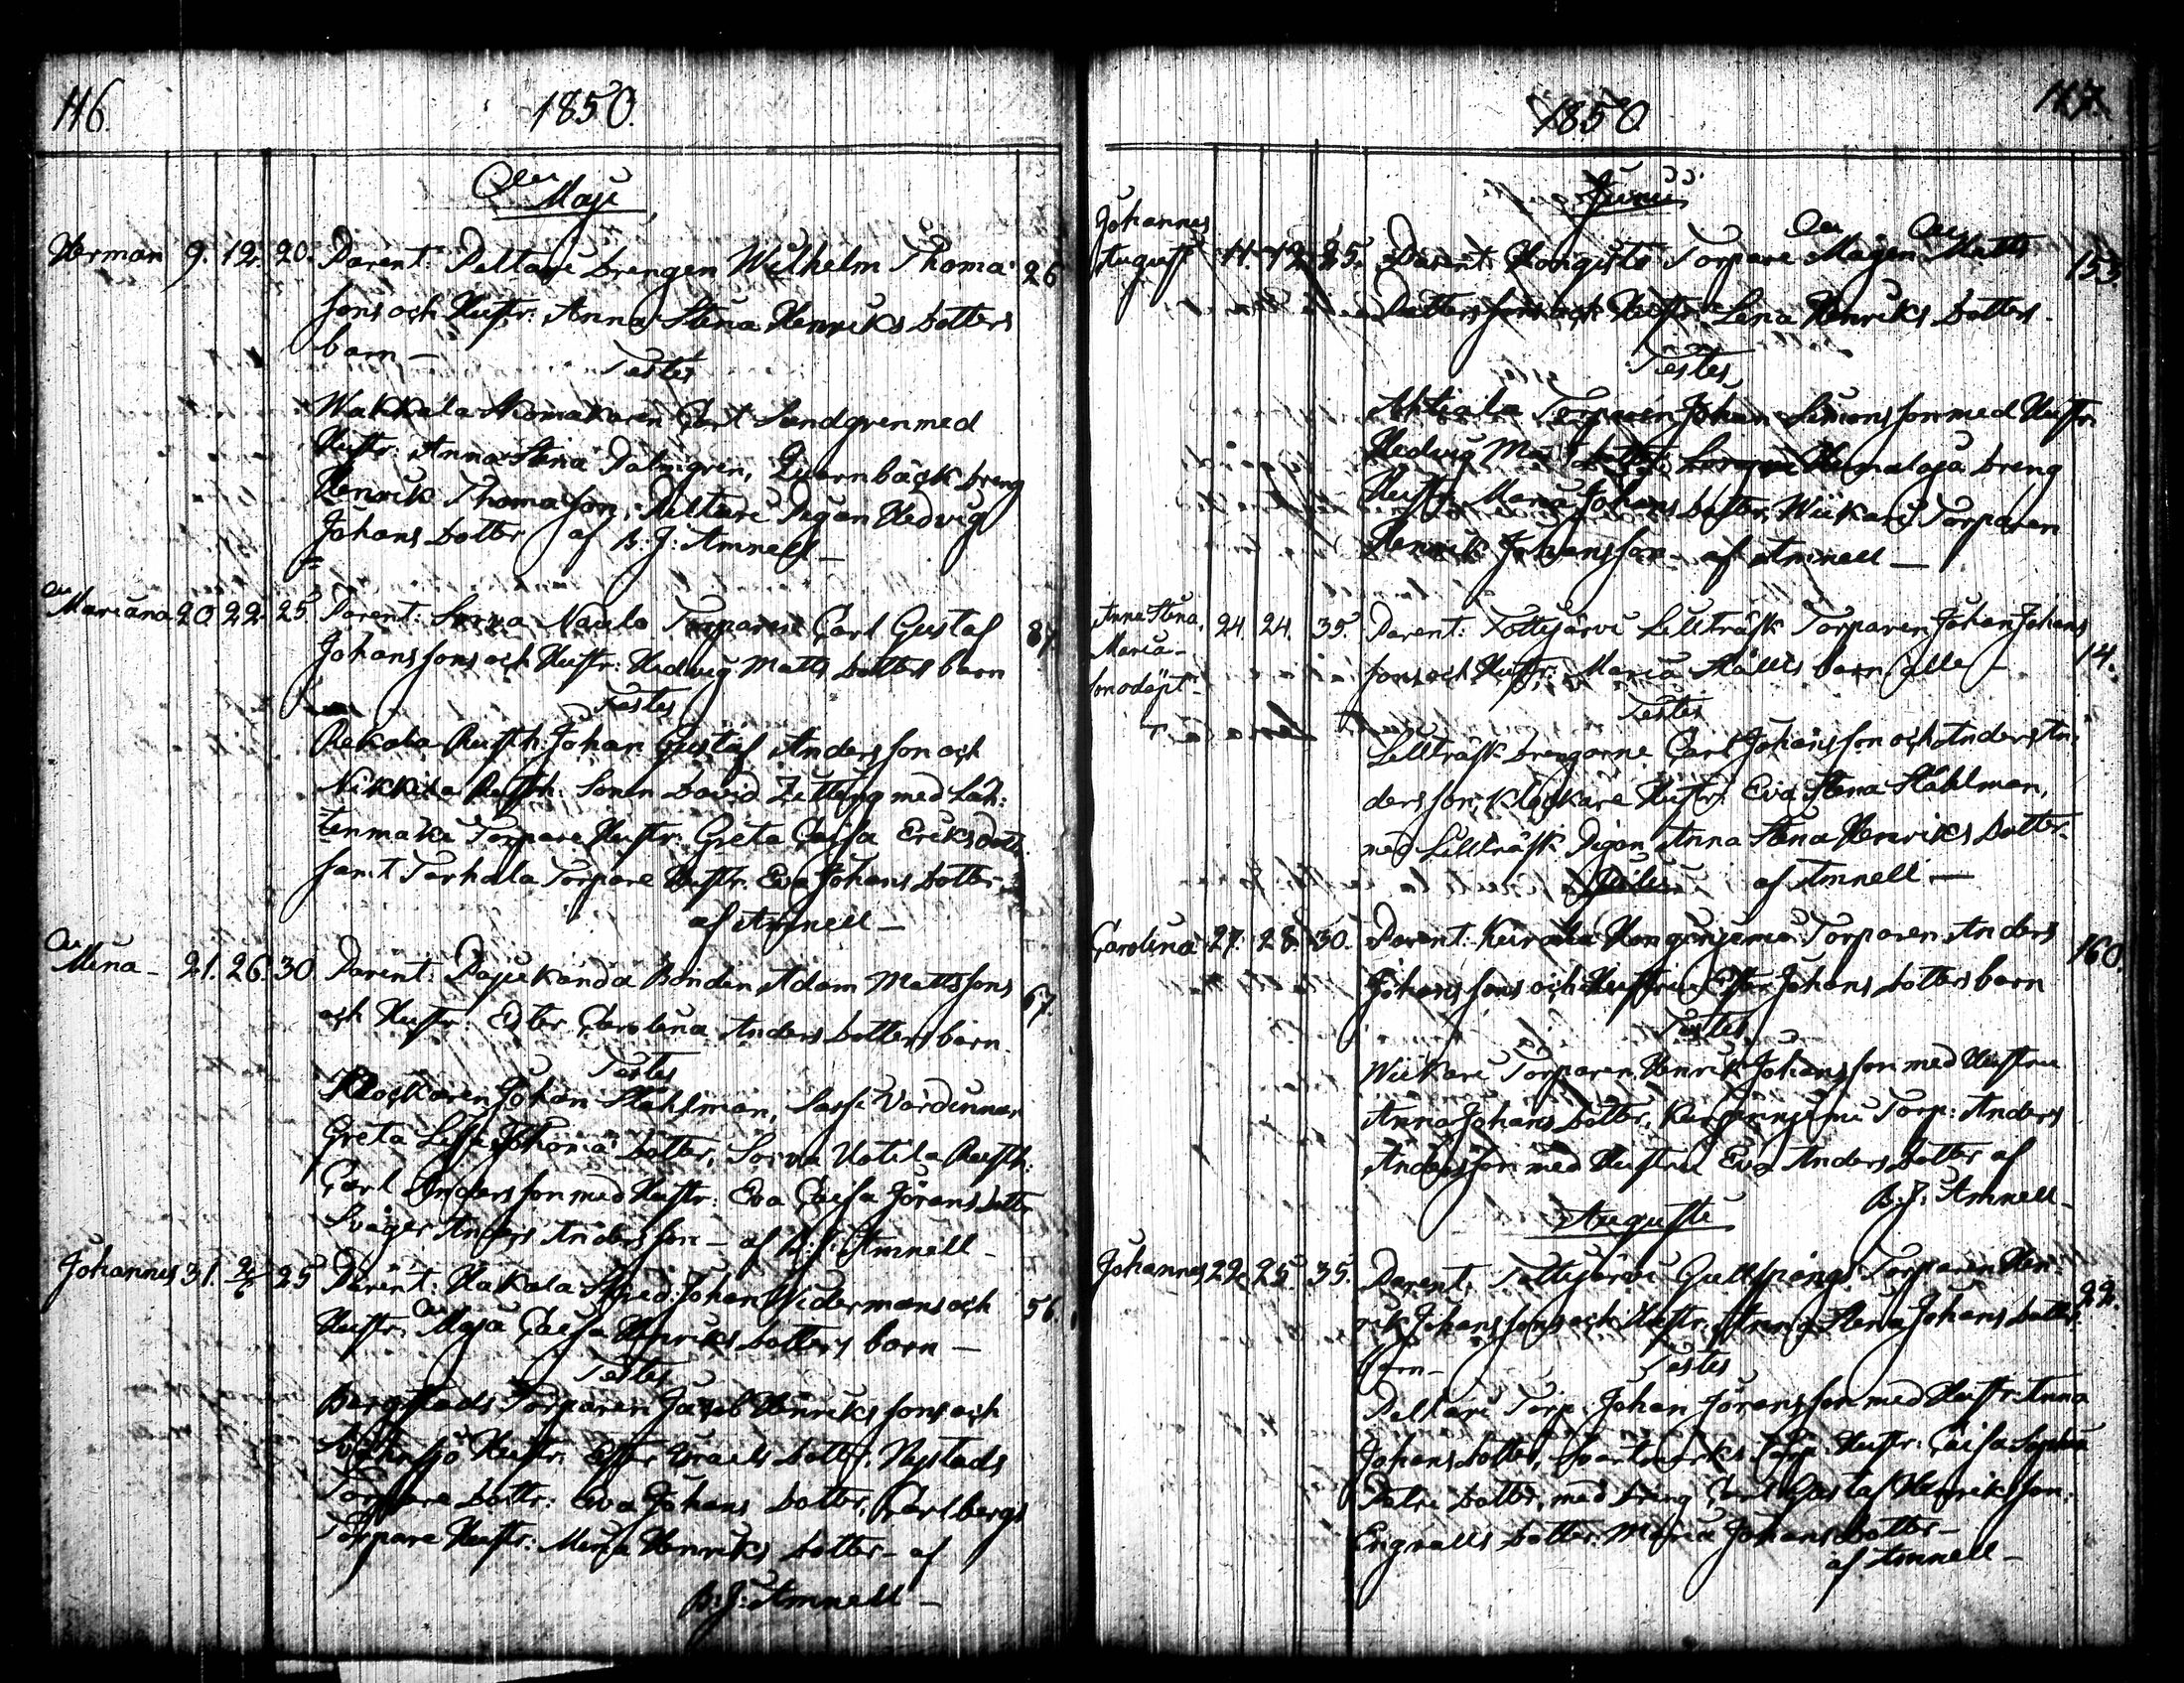 116.
1850.
Maji
Herman 9. 12. 20. Parent: Peltari drengen Wilhelm Thoma 26
sons och Hustr: Anna Stina Henriks dotters
barn —
Testes
Wakkala Skomakaren Sandgren med
Hustr: Anna Stina Palmgren, Qvarnbäck dreng
Henrik Thomason, Peltari Pigan Hedvig
Johans dotter af B: J: Amnell —
Mariana 20. 22. 25. Parent: Sorva Naula Torparen Carl Gustaf 87.
Johans sons och Hustr: Hedvig Matts dotters barn
Testes
Rekola Rusth: Johan Gustaf Andersson och
Nikkila Rusth: Sonen David Zetterg med Lah:
tenmaki Torpare Hustr: Greta Caisa Eriksdott
samt Tarhala Torpare Hustr. Eva Johans dotter —
af Amnell —
Mina — 21. 26. 30. Parent: Pajukanda Bonden Adam Mattssons 67.
och Hustr: Ester Carolina Anders dotters barn.
Testes
Klockaren Johan Ståhlman, Sassi Värdinnan
Greta Lisa dotter, Sorva Uotila Rusth:
Carl Andersson med Hustr: Eva Caisa Jörans dotter
Svåger Anders Andersson — af B: J: Amnell —
Johannes 31. 2/6 25 Parent: Hakala Smed: Johan Widermans och 56.
Hustr: Maja Caisa Henriks dotters barn —
Testes
Bergstads Torparen Jacob Henriks son och
Hustr: Ester dotter, Nystads
Torpare dottr: Eva Johans dotter, Carlbergs
Torpare Hustr: Mina Henriks dotter — af
B: J: Amnell —
117.
1850
Junii
Johannes
August 11. 12. 25. Parent: Hongisto Torpare Mågen Matts 153.
sons och Hustr: Lena Henriks dotters.
Testes
Ahtiala Torparen Johan Simonsson med Hustr:
Hedvig dotter dreng
Hustr: Maria Johans dotter, Wiikari Torparen
Henrik Johansson — af Amnell —
Anna Stina. 24. 24. 35. Parent: Tottijärvi Lillträsk Torparen Johan Johans
Maria — sons och Hustr: Maria barn — 14.
Testes
Lillträsk drengarne Carl Johansson och Anders An:
dersson, Klockare Hustr: Eva Stina Ståhlman,
med Lillträsk Pigan Anna Stina Henriks dotter —
Julii af Amnell —
Carolina 27. 28. 30. Parent: Torparen Anders 160.
Johans sons och Hustru Ester Johans dotters barn
Testes
Wiikari Torparen Henrik Johansson med Hustru
Anna Johans dotter, Torp: Anders
Andersson med Hustru Eva Anders dotter af
B: J: Amnell —
Augusti
Johannes 22. 25. 35. Parent: Tottijärvi Gullspångs Torparen Hen: 22.
rik Johans sons och Hustr: Anna Stina Johans dotters
barn — Testes
Peltari Torp: Johan Jöransson med Hustr: Anna
Johans dotter, Svartmarks Torp: Hustr: Caisa Sophia
Petri dotter, med dreng Carl Gustaf Henriksson,
Engvalls dotter Maria Johans dotter —
af Amnell —